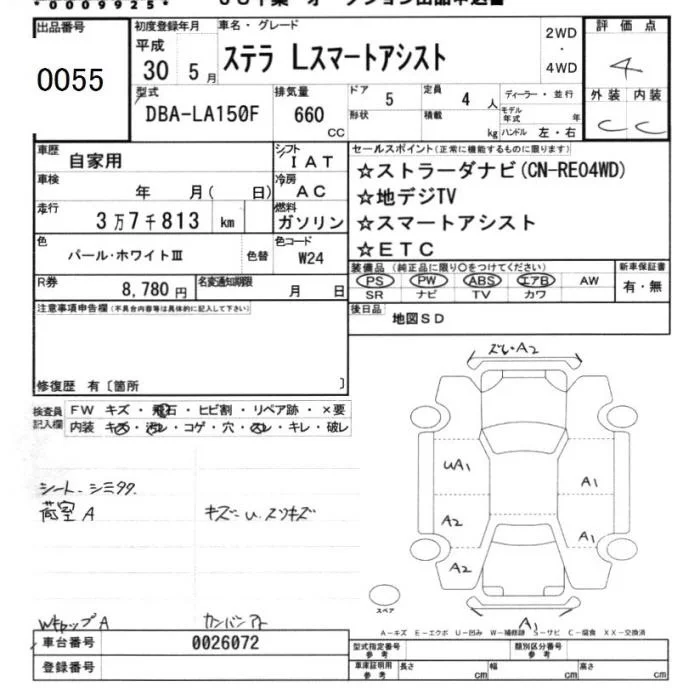 *0009925*
出品番号
0055
初度登録年月
平成
30 5月
車名・グレード
ステラ Lスマートアシスト
2WD
・
4WD
評価点
4
外装 内装
C C
型式
DBA-LA150F
排気量
660
CC
ドア
5
形状
定員
4 人
積載
kg
ディーラー・並行
モデル年式 年
ハンドル 左・右
車歴
自家用
シフト
IAT
車検
年 月( 日)
冷房
AC
走行
3万7千813 km
燃料
ガソリン
色
パール・ホワイトⅢ
色替
色コード
W24
R券
8,780円
名変通知期限
月 日
セールスポイント(正常に機能するものに限ります)
☆ストラーダナビ(CN-RE04WD)
☆地デジTV
☆スマートアシスト
☆ETC
装備品(純正品に限り○をつけてください)
PS PW ABS エアB AW
SR ナビ TV カワ
新車保証書
有・無
後日品
地図SD
注意事項申告欄(不具合内容等は具体的に記入して下さい)
修復歴 有〔箇所 〕
検査員記入欄
FW キズ・飛石・ヒビ割・リペア跡・×要
内装 キズ・汚レ・コゲ・穴・スレ・キレ・破レ
シート シミ
荷室 A
キズ U スリキズ
WキャップA
カンバンアト
A2
UA1
A1
A2
A1
A2
A1
スペア
A-キズ E-エクボ U-凹み W-補修跡 S-サビ C-腐食 XX-交換済
車台番号
0026072
登録番号
型式指定番号
参考
類別区分番号
参考
車庫証明用
参考
長さ cm
幅 cm
高さ cm